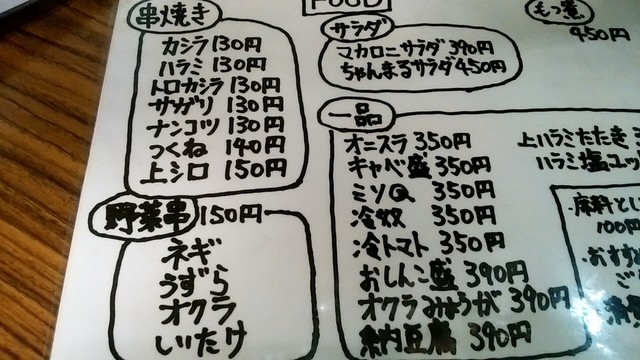 FOOD
串焼き
カシラ 130円
ハラミ 130円
トロカシラ 130円
サガリ 130円
ナンコツ 130円
つくね 140円
上シロ 150円
野菜串 150円
ネギ
うずら
オクラ
しいたけ
サラダ
マカロニサラダ 390円
ちゃんまるサラダ 450円
もつ煮
450円
一品
オニスラ 350円
キャベ盛 350円
ミソQ 350円
冷奴 350円
冷トマト 350円
おしんこ盛 390円
オクラみょうが 390円
納豆豆腐 390円
上ハラミたたき
ハラミ塩ユッ
麻料とし
100円
・おすすめ
ご